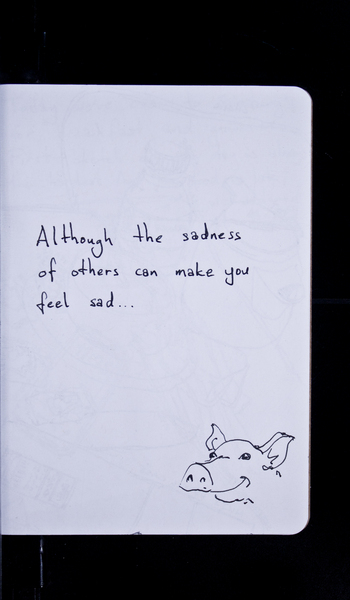 Although the sadness
of others can make you
feel sad...